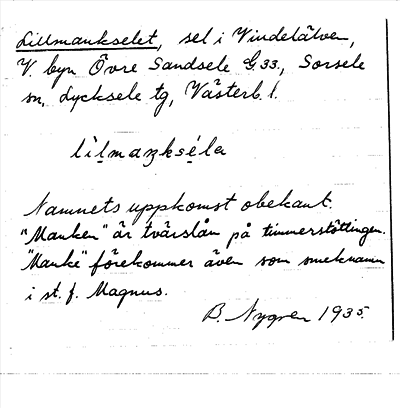 Lillmankselet, sel i Vindelälven,
V. byn Övre Sandsele G 33., Sorsele
sn, Lycksele tg, Västerb. l.
lìlmaŋksélα
Namnets uppkomst obekant.
"Manken" är tvärslån på timmerstöttingen.
"Manke" förekommer även som smeknamn
i st. f. Magnus.
B. Nygren 1935.